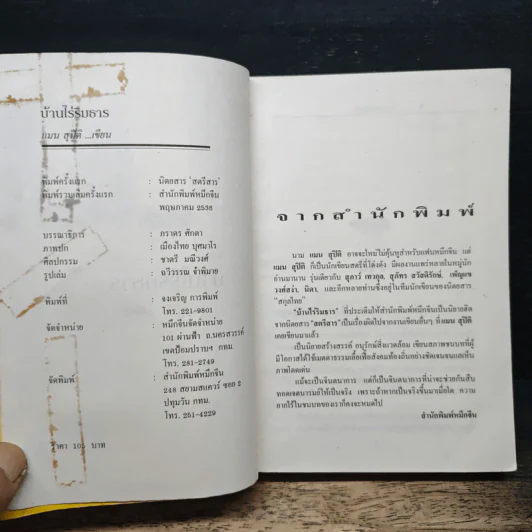 บ้านไร่ริมธาร
แมน สุปิติ ...เขียน
พิมพ์ครั้งแรก : นิตยสาร 'สตรีสาร'
พิมพ์รวมเล่มครั้งแรก : สำนักพิมพ์หมึกจีน
พฤษภาคม 2536
บรรณาธิการ : ภราดร ศักดา
ภาพปก : เมืองไทย บุศมาโร
ศิลปกรรม : ชาตรี มณีวงศ์
รูปเล่ม : ฉวีวรรณ จำพิมาย
พิมพ์ที่ : จงเจริญ การพิมพ์
โทร. 221-9801
จัดจำหน่าย : หมึกจีนจัดจำหน่าย
101 ผ่านฟ้า ถ.นครสวรรค์
เขตป้อมปราบฯ กทม.
โทร. 281-2749
จัดพิมพ์ : สำนักพิมพ์หมึกจีน
248 สยามสแควร์ ซอย 2
ปทุมวัน กทม.
โทร. 251-4229
ราคา 105 บาท
จากสำนักพิมพ์
นาม แมน สุปิติ อาจจะใหม่ไม่คุ้นหูสำหรับแฟนหมึกจีน แต่
แมน สุปิติ ก็เป็นนักเขียนสตรีที่โด่งดัง มีผลงานแพร่หลายในหมู่นัก
อ่านมานาน รุ่นเดียวกับ สุดาว์ เทวกุล, สุภัทร สวัสดิรักษ์, เพ็ญแข
วงศ์สง่า, นิดา, และอีกหลายท่านซึ่งอยู่ในทีมนักเขียนของนิตยสาร
"สกุลไทย"
"บ้านไร่ริมธาร" ที่ประเดิมให้สำนักพิมพ์หมึกจีนเป็นนิยายตัด
จากนิตยสาร "สตรีสาร" เป็นเรื่องผิดไปจากงานเขียนอื่นๆ ที่แมน สุปิติ
เคยเขียนมาแล้ว
เป็นนิยายสร้างสรรค์ อนุรักษ์สิ่งแวดล้อม เขียนสภาพชนบทที่ผู้
มีโอกาสได้ใช้เมตตาธรรมเอื้อเฟื้อสังคมท้องถิ่นอย่างชัดเจนจนแลเห็น
ภาพโดดเด่น
แม้จะเป็นจินตนาการ แต่ก็เป็นจินตนาการที่น่าจะช่วยกันสืบ
ทอดเจตนารมย์ให้เป็นจริง เพราะถ้าหากเป็นจริงขึ้นมาเมื่อใด ความ
ยากไร้ในชนบทของเราก็คงจะหมดไป
สำนักพิมพ์หมึกจีน